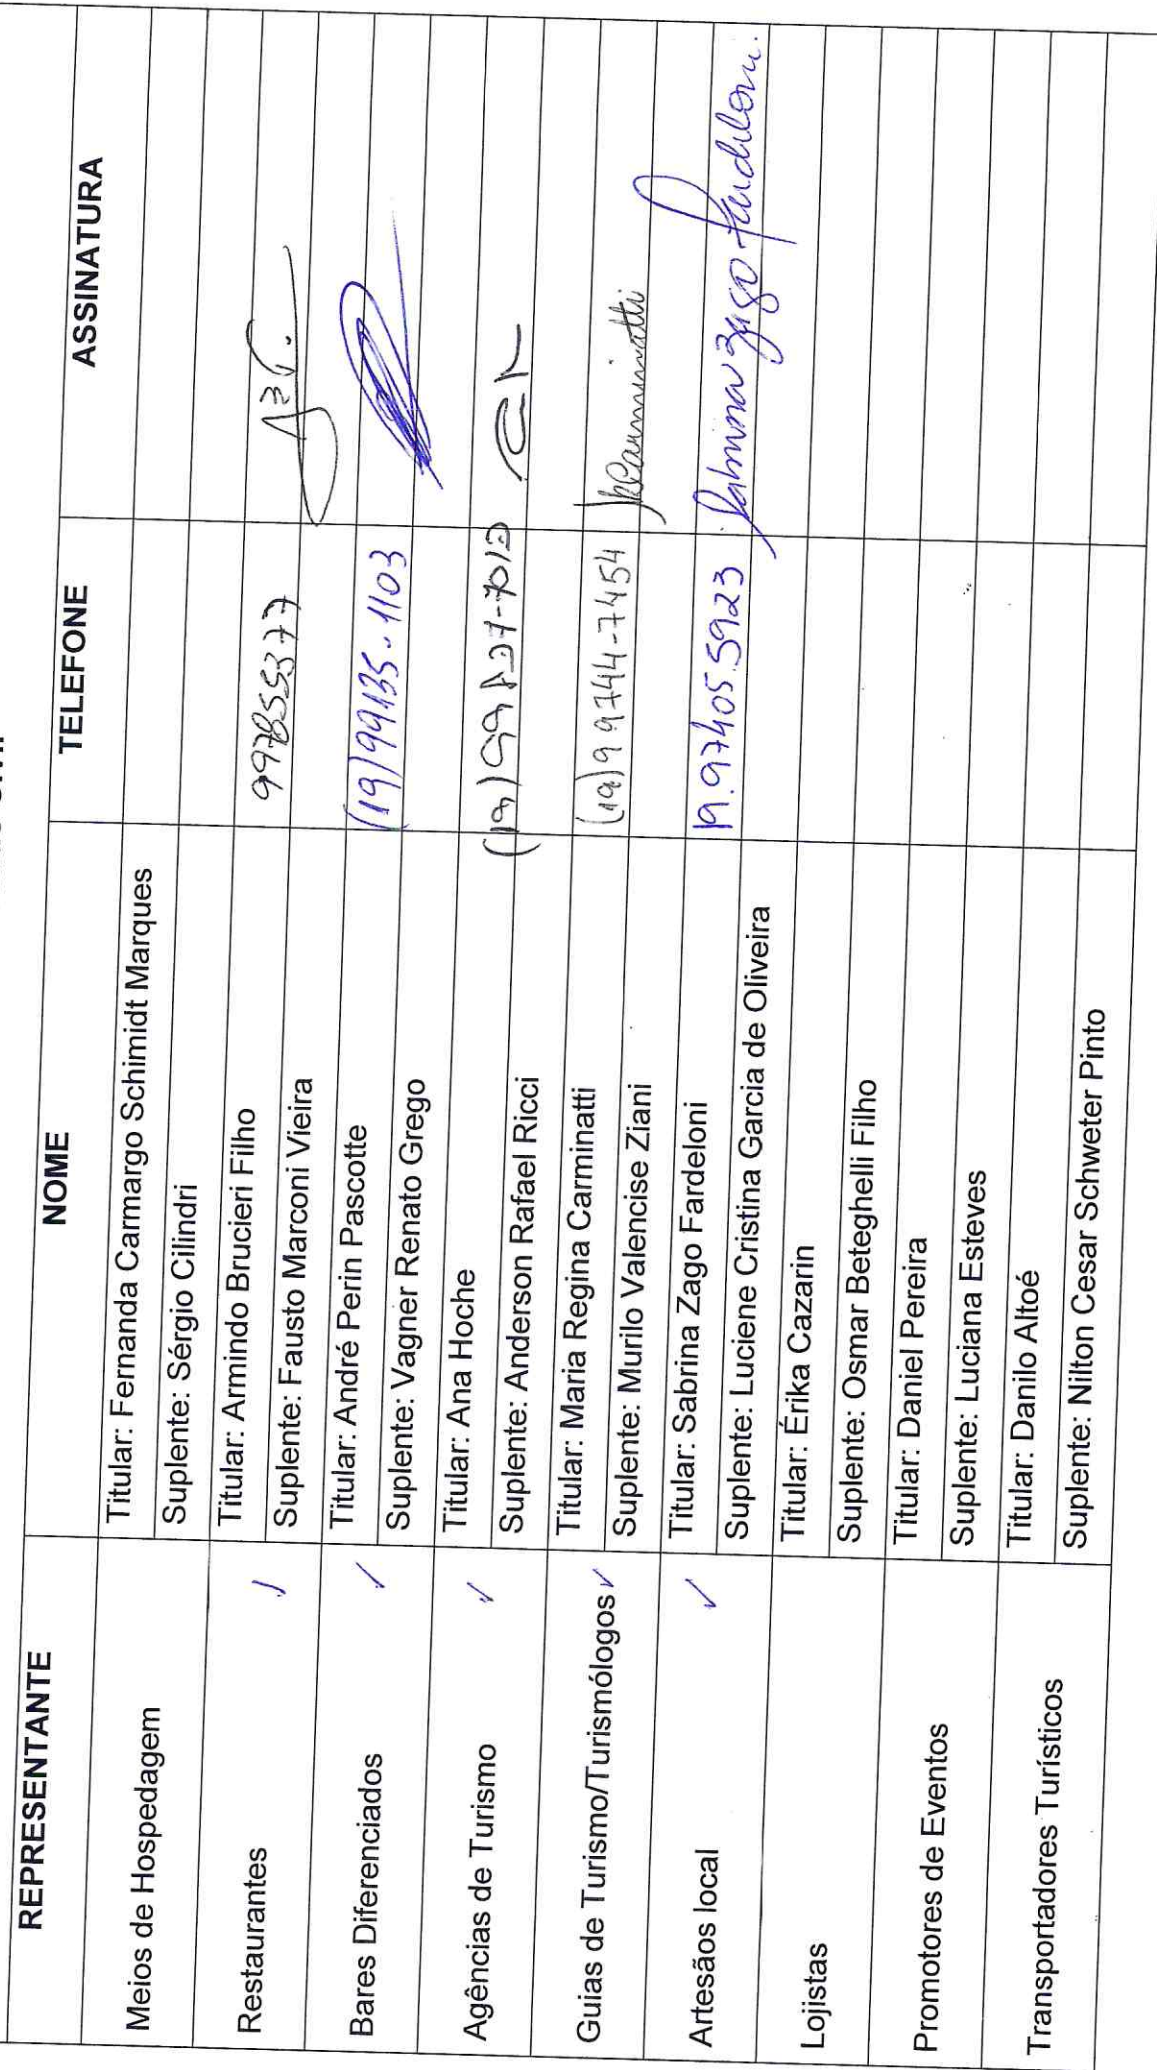 REPRESENTANTE NOME TELEFONE ASSINATURA
Meios de Hospedagem Titular: Fernanda Carmargo Schimidt Marques
Suplente: Sérgio Cilindri
Restaurantes Titular: Armindo Brucieri Filho
Suplente: Fausto Marconi Vieira 997855377
Bares Diferenciados Titular: André Perin Pascotte
Suplente: Vagner Renato Grego (19) 99135-1103
Agências de Turismo Titular: Ana Hoche
Suplente: Anderson Rafael Ricci
Guias de Turismo/Turismólogos Titular: Maria Regina Carminatti (19) 99744-7454 Carminatti
Suplente: Murilo Valencise Ziani
Artesãos local Titular: Sabrina Zago Fardeloni 19.97405.5923 Sabrina Zago Fardeloni.
Suplente: Luciene Cristina Garcia de Oliveira
Lojistas Titular: Érika Cazarin
Suplente: Osmar Beteghelli Filho
Promotores de Eventos Titular: Daniel Pereira
Suplente: Luciana Esteves
Transportadores Turísticos Titular: Danilo Altoé
Suplente: Nilton Cesar Schweter Pinto